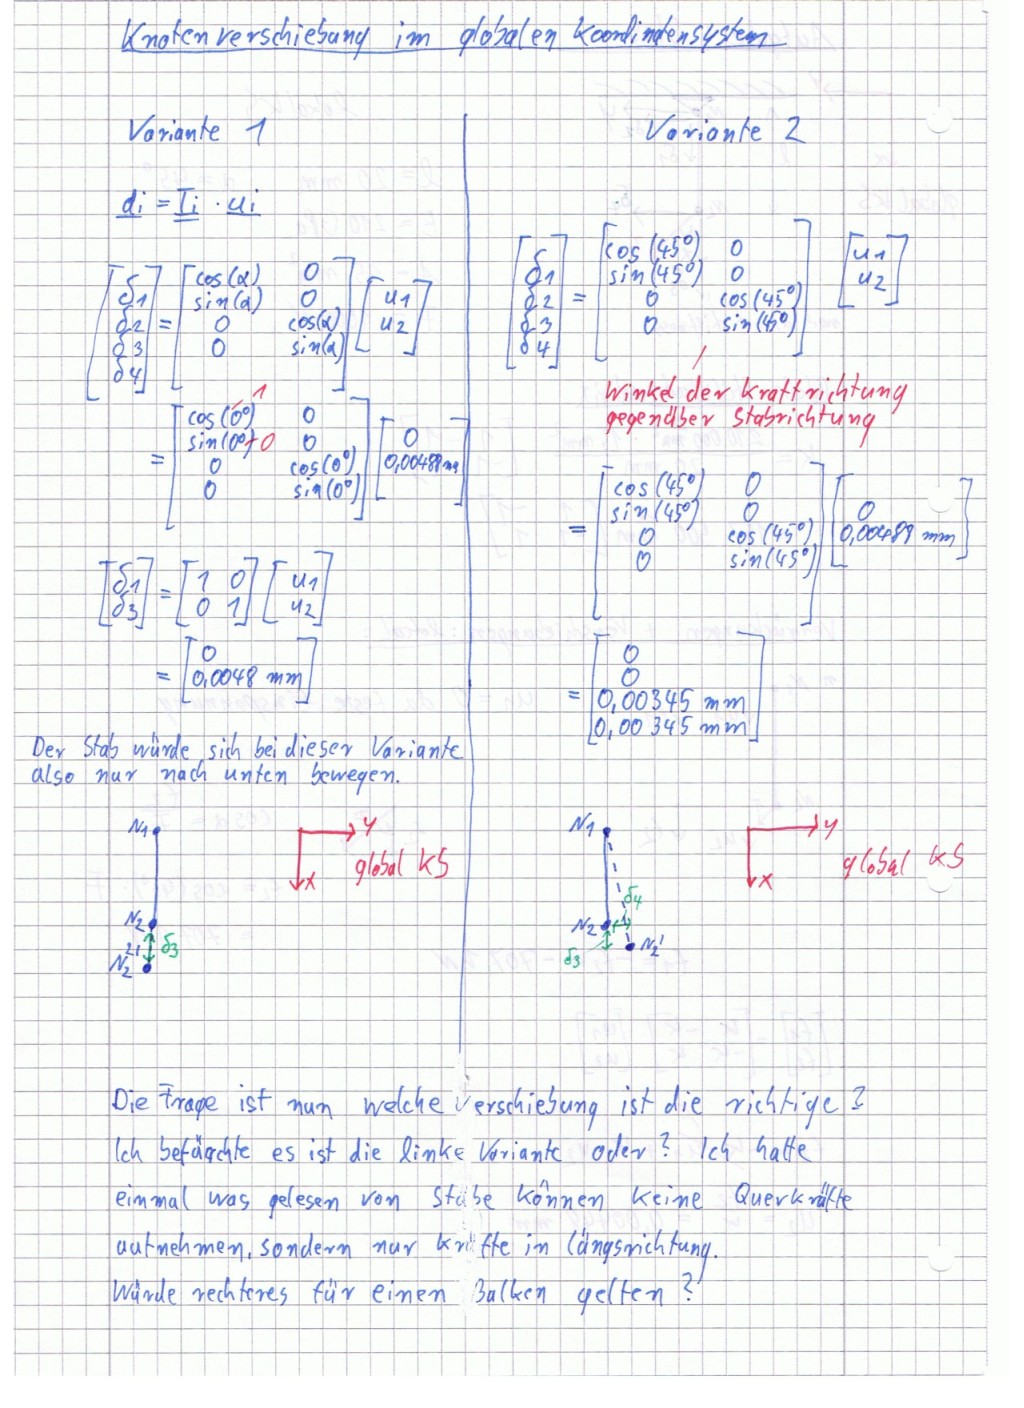 Knotenverschiebung im globalen Koordindensystem
Variante 1
di = Ti · ui
[δ1 δ2 δ3 δ4] = [cos(α) 0
sin(α) 0
0 cos(α)
0 sin(α)] [u1 u2]
1
= [cos(0°) 0
sin(0°) 0 0
0 cos(0°)
0 sin(0°)] [0
0,00488 mm]
[δ1 δ3] = [1 0
0 1] [u1 u2]
= [0
0,0048 mm]
Der Stab würde sich bei dieser Variante
also nur nach unten bewegen.
N1
N2
N2'
δ3
Y
X
global KS
Variante 2
[δ1 δ2 δ3 δ4] = [cos(45°) 0
sin(45°) 0
0 cos(45°)
0 sin(45°)] [u1 u2]
Winkel der Kraftrichtung
gegenüber Stabrichtung
= [cos(45°) 0
sin(45°) 0
0 cos(45°)
0 sin(45°)] [0
0,00489 mm]
= [0
0
0,00345 mm
0,00345 mm]
N1
N2
N2'
δ4
δ3
Y
X
global KS
Die Frage ist nun welche Verschiebung ist die richtige?
Ich befürchte es ist die linke Variante oder? Ich hatte
einmal was gelesen von Stäbe können keine Querkräfte
aufnehmen, sondern nur Kräfte in Längsrichtung.
Würde rechteres für einen Balken gelten?